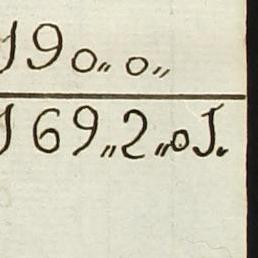 190〃0〃
169〃2〃01.